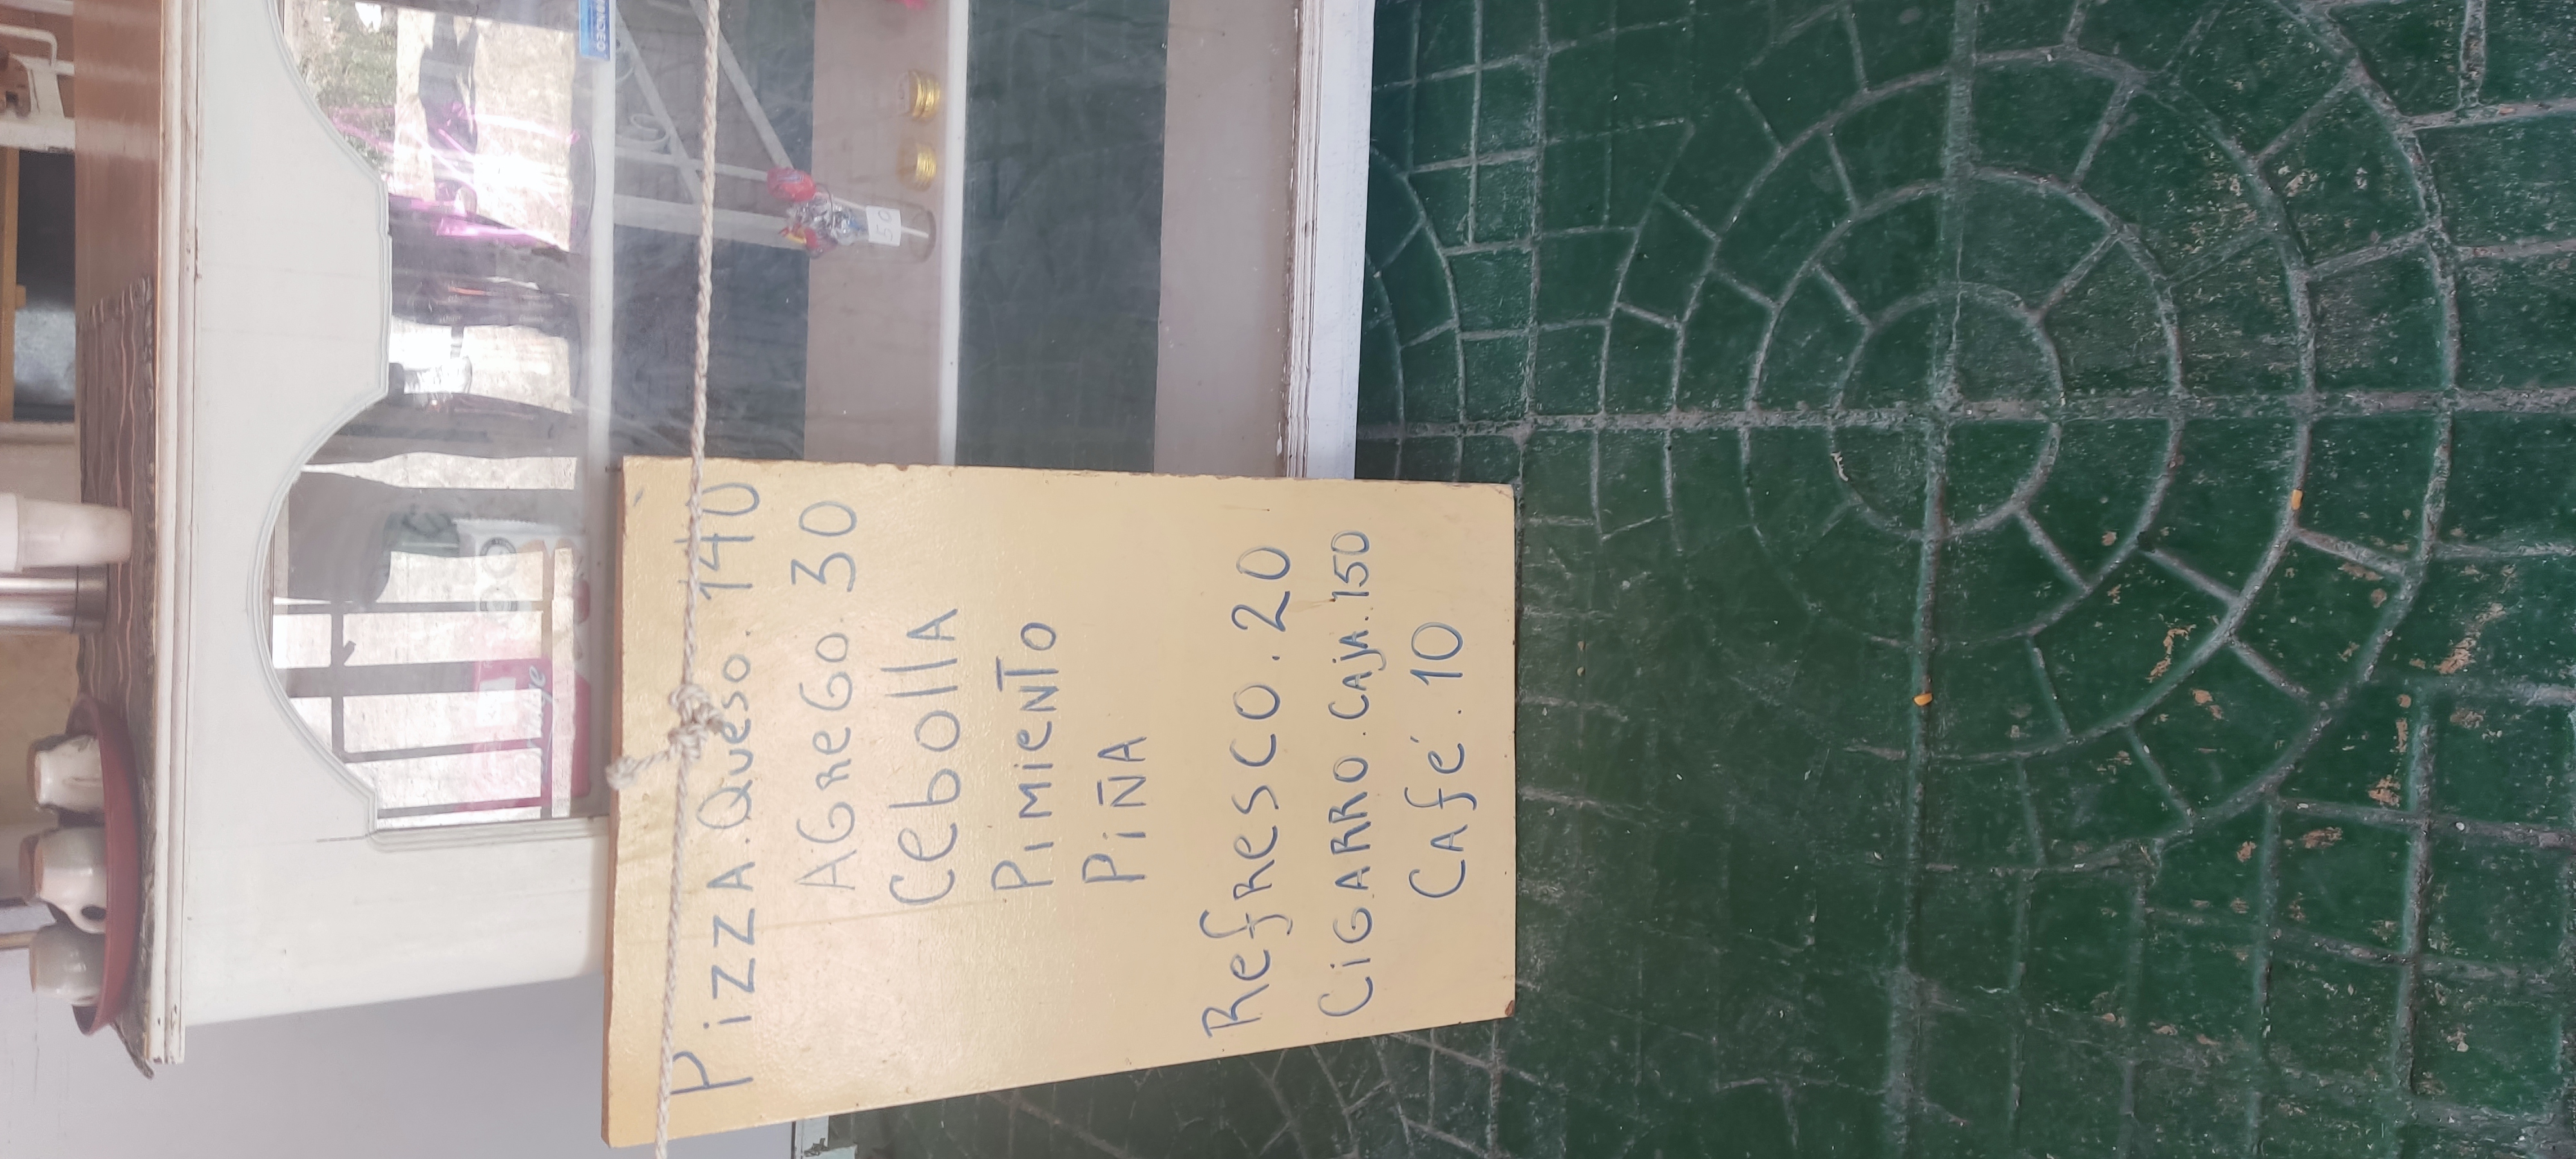 Bridge
PiZZA. Queso. 140
AGReGO. 30
50
CebollA
PiMieNTO
PiÑA
RefResCO. 20
CiGARRO. CAjA. 150
CAfé. 10